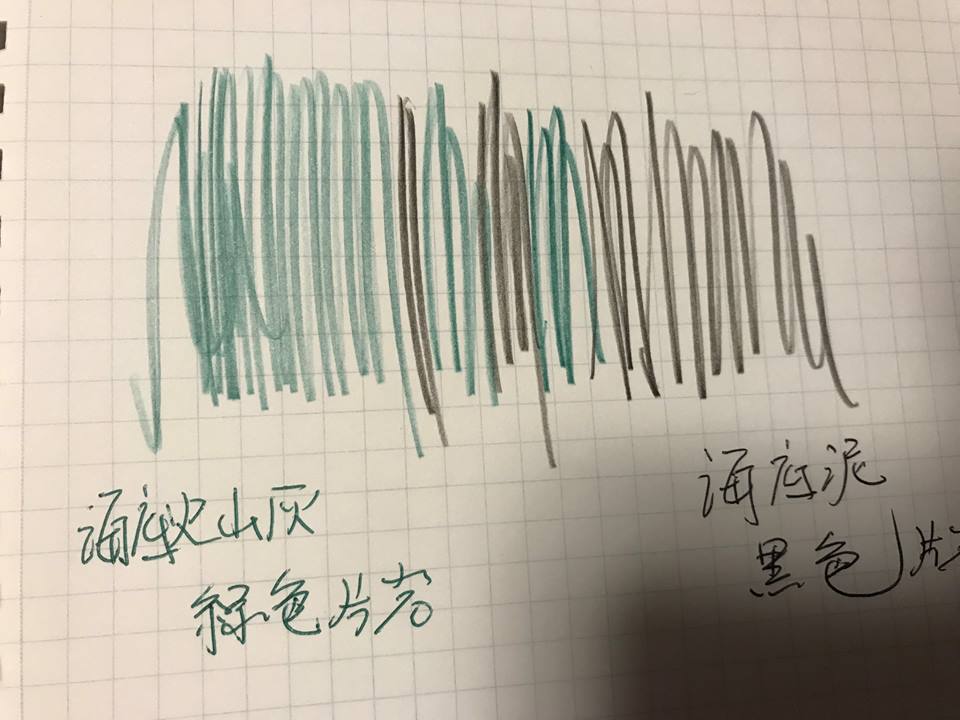 海底火山灰
綠色片岩
海底泥
黑色片